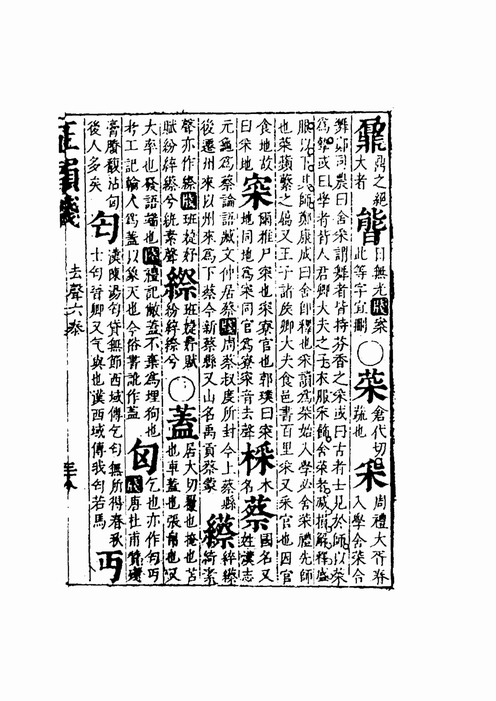 鼐鼎之絕
大者
日無光箋案
此等字宜刪
○菜倉代切
蔬也
采周禮大胥春
入學舍菜合
舞鄭司農曰舍采謂舞者皆持芬香之采或曰古者士見於師以菜
為贄或曰學者皆人君卿大夫之子衣服采飾舍采者減損解釋盛
服以下其師鄭康成曰舍即釋也采讀爲菜始入學必舍菜禮先師
也菜蘋蘩之屬又王子諸侯卿大夫食邑書百里采又采官也因官
食地故
曰采地
寀爾雅尸寀也寀寮官也郭璞曰寀
地同地爲寀同官爲寮寀音去聲
棌木
名
蔡國名又
姓漢志
元龜爲蔡論語臧文仲居蔡箋周蔡叔度所封今上蔡縣
後遷州來以州來爲下蔡今新蔡縣又山名禹貢蔡蒙
縩綷縩
紈素
聲亦作箋班婕妤
賦紛綷縩兮紈素聲
班婕妤賦
紛綷縩兮
○蓋居大切覆也掩也苫
也車蓋也張帛也又
大率也發語端也箋禮記敝蓋不棄爲埋狗也
考工記輪人爲蓋以象天也今俗書訛作盖
匄乞也亦作匃丐
箋唐杜甫贊殘
膏賸馥沾匄
後人多矣
匃漢陳湯匃貸無節西域傳乞匃無所得春秋
士匃晉卿又气與也漢西域傳我匃若馬
丐
正韻箋
去聲六泰